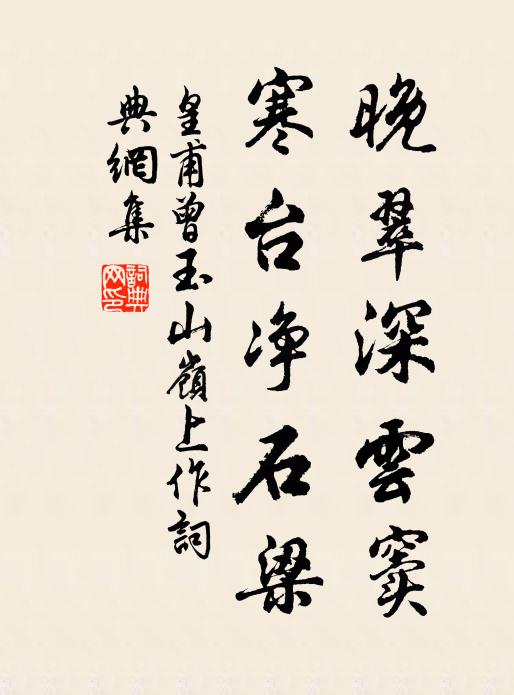 晚翠深雲竇
寒台净石梁
皇甫曾玉山嶺上作詞
典網集
詞典網印